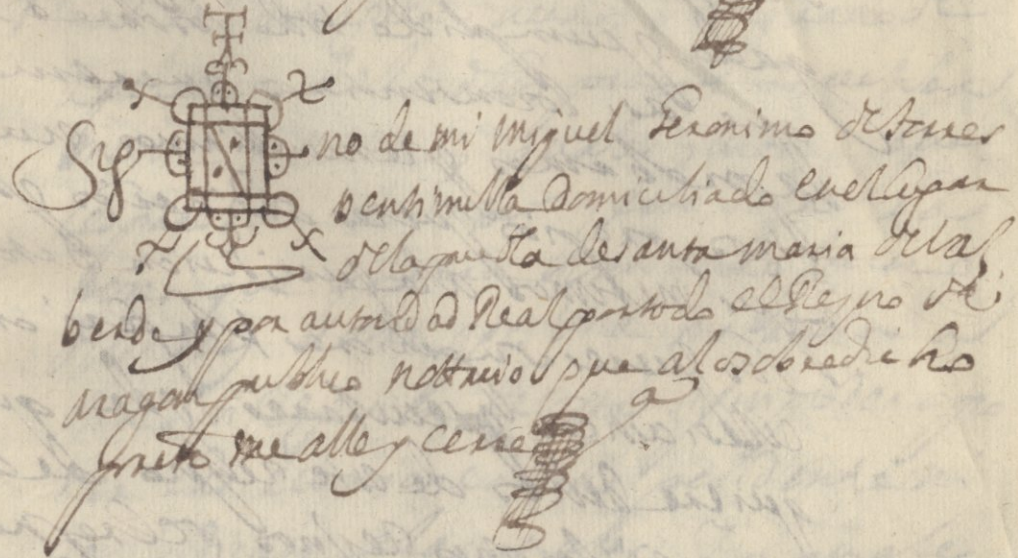 Sig no de mi Miguel Jeronimo de torres
bentimilla Domiciliado en el lugar
de la puebla de santa maria de bal
berde y por autoridad Real por todo el Reyno de
aragon publico nottario que a lo sobredicho
presente me alle y cerre